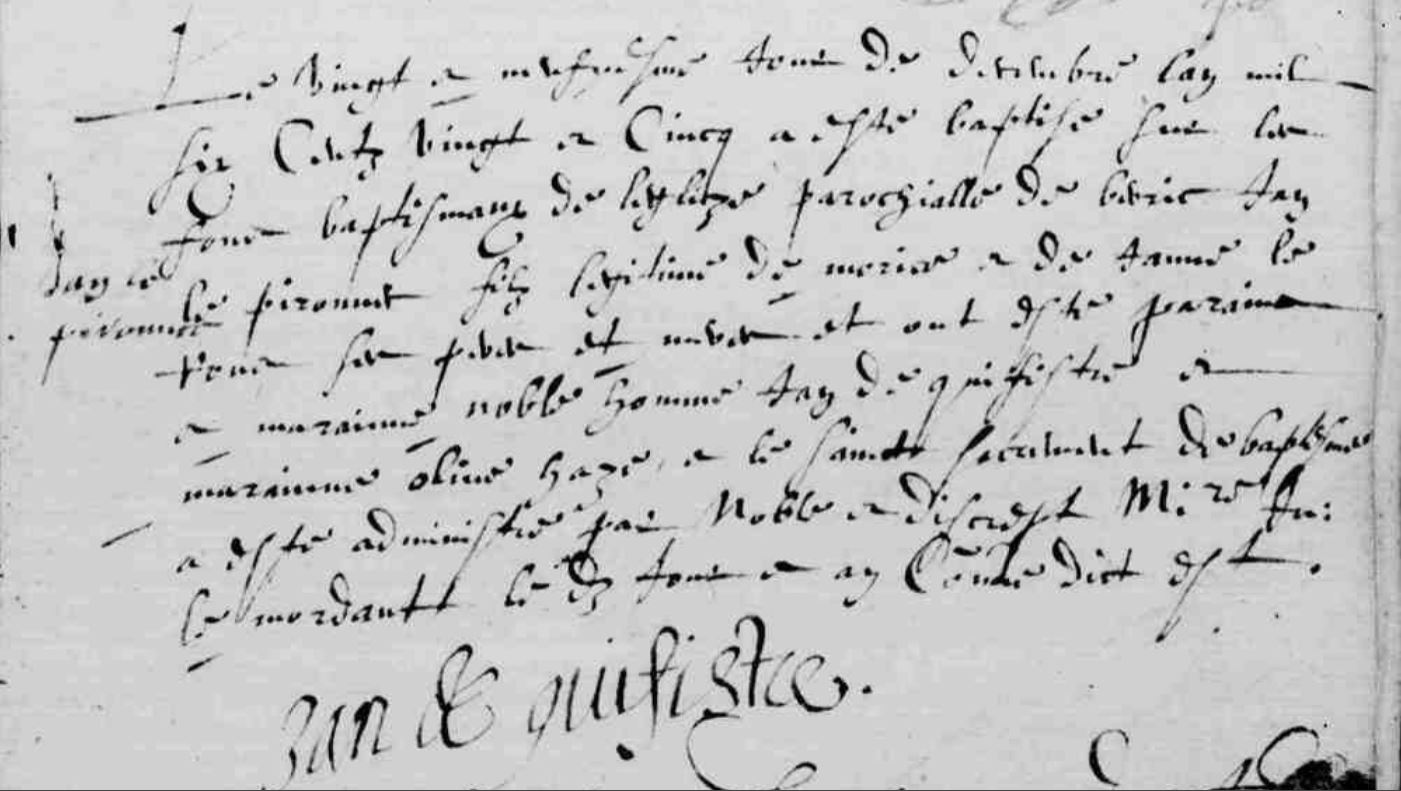 Le vingt et neufviesme jour de decembre lan mil
six Centz vingt et Cincq a esté baptisé sur les
fons baptismaux de leglize parochialle de beric Jan
Jan le
le pironnec filz legitime de morice et de Janne le
pironnec
ses pere et mere et ont esté parains
et maraine noble homme Jan de quifistre et
maraine olive haze et le sainct sacrement de baptesme
a esté administré par Noble et discrept M:re
le mordantt le dz jour et an Come dict est.
Jan de quifistre.